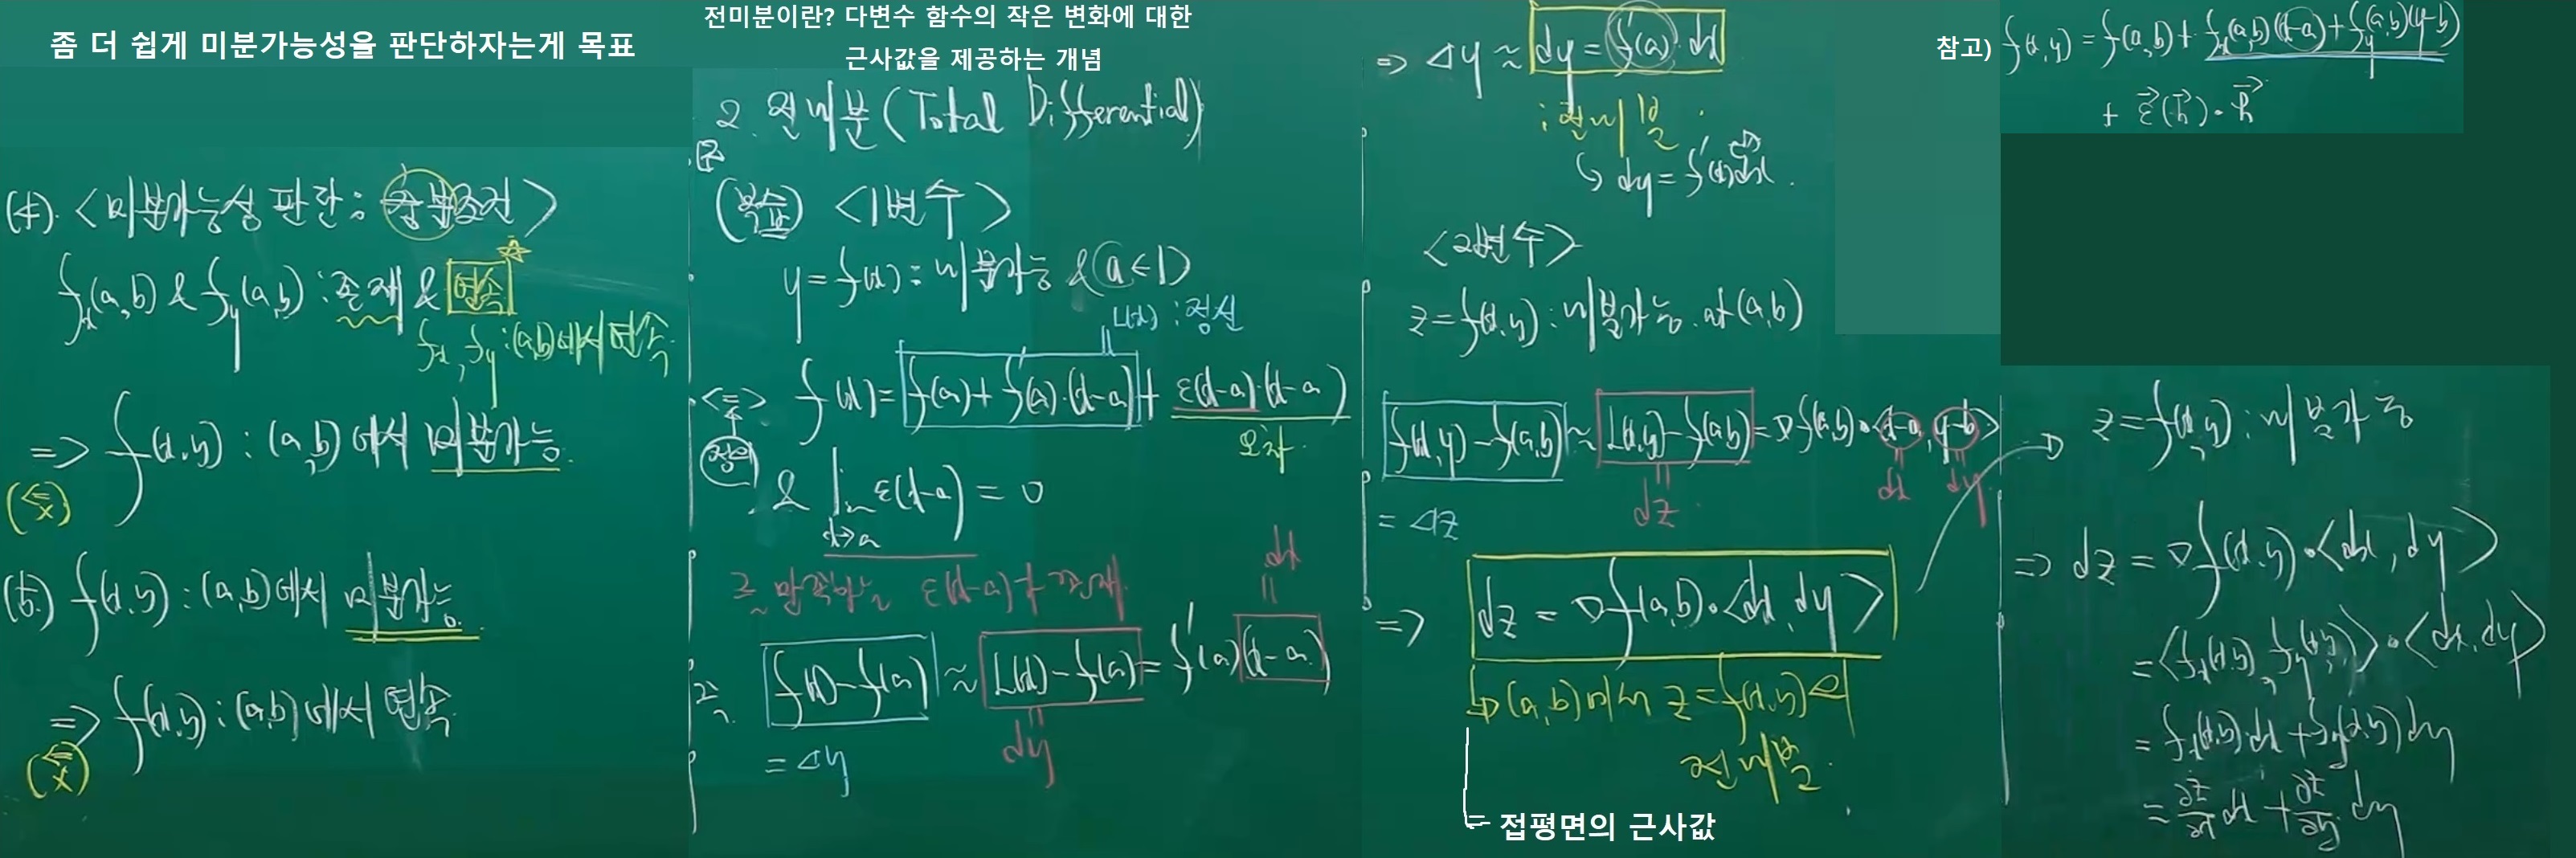 좀 더 쉽게 미분가능성을 판단하자는게 목표
<미분가능성 판단: 충분조건>
fx(a,b) & fy(a,b) : 존재 & 연속
fx, fy : (a,b)에서 연속
=> f(x,y) : (a,b)에서 미분가능.
f(x,y) : (a,b)에서 미분가능.
=> f(x,y) : (a,b)에서 연속
전미분이란? 다변수 함수의 작은 변화에 대한
근사값을 제공하는 개념
2. 전미분 (Total Differential)
(복습) <1변수>
y = f(x) : 미분가능 & (a∈I)
L(x) : 접선
<=> f(x) = f(a) + f'(a)·(x-a) + ε(x-a)·(x-a)
정의
오차
& lim ε(x-a) = 0
x→a
를 만족하는 ε(x-a)가 존재
dx
즉, f(x) - f(a) ≈ L(x) - f(a) = f'(a)(x-a)
= Δy
dy
=> Δy ≈ dy = f'(a)·dx
: 전미분.
↳ dy = f'(x)dx.
<2변수>
z = f(x,y) : 미분가능. at (a,b)
f(x,y) - f(a,b) ≈ L(x,y) - f(a,b) = ∇f(a,b)·<x-a, y-b>
= Δz
dz
dx
dy
=> dz = ∇f(a,b)·<dx, dy>
↳ (a,b)에서 z = f(x,y)의
전미분.
= 접평면의 근사값
참고) f(x,y) = f(a,b) + fx(a,b)(x-a) + fy(a,b)(y-b)
+ ε⃗(h⃗)·h⃗
z = f(x,y) : 미분가능
=> dz = ∇f(x,y)·<dx, dy>
= <fx(x,y), fy(x,y)>·<dx, dy>
= fx(x,y)dx + fy(x,y)dy
= ∂z/∂x dx + ∂z/∂y dy